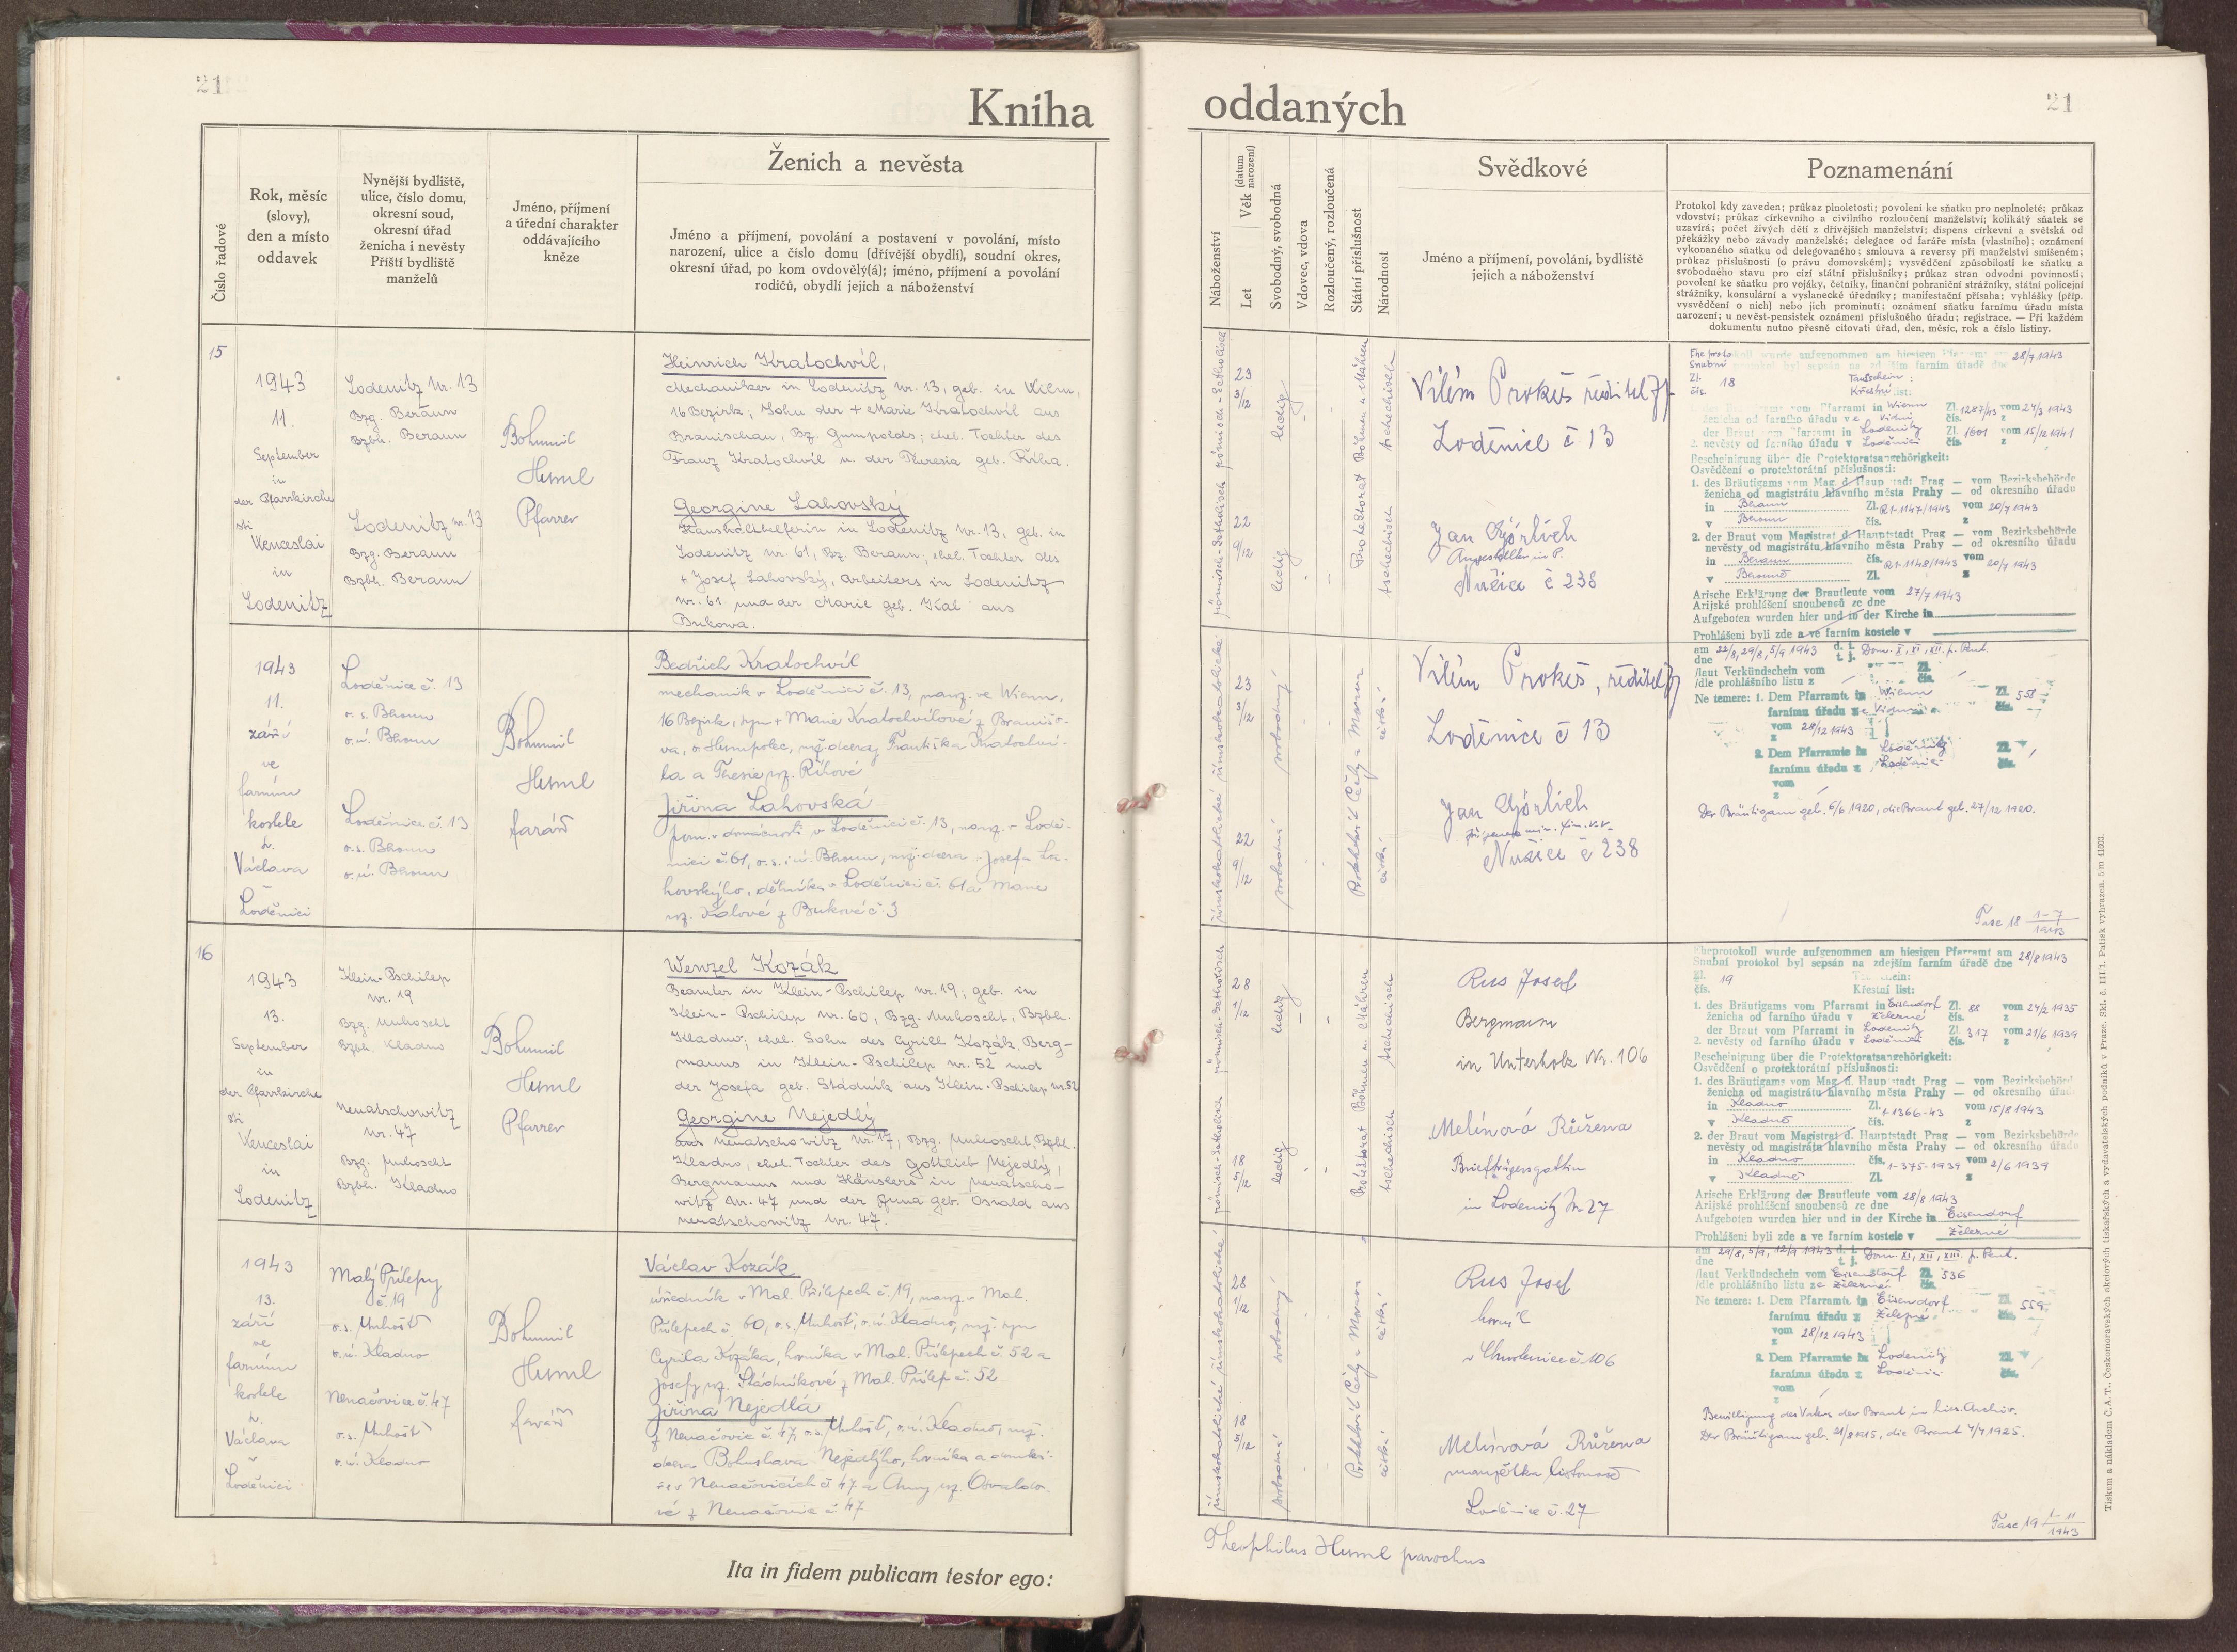 21
Kniha
Číslo řadové
Rok, měsíc
(slovy),
den a místo
oddavek
Nynější bydliště,
ulice, číslo domu,
okresní soud,
okresní úřad
ženicha i nevěsty
Příští bydliště
manželů
Jméno, příjmení
a úřední charakter
oddávajícího
kněze
Ženich a nevěsta
Jméno a příjmení, povolání a postavení v povolání, místo
narození, ulice a číslo domu (dřívější obydlí), soudní okres,
okresní úřad, po kom ovdovělý(á); jméno, příjmení a povolání
rodičů, obydlí jejich a náboženství
15
1943
11.
September
in
der Pfarrkirche
Sti
Venceslai
in
Lodenitz
Lodenitz Nr. 13
Bzg. Beraun
Bzbh. Beraun
Lodenitz nr. 13
Bzg. Beraun
Bzbh. Beraun
Bohumil
Huml
Pfarrer
Heinrich Kratochvíl,
Mechaniker in Lodenitz Nr. 13, geb. in Wien,
16 Bezirk; Sohn der + Marie Kratochvíl aus
Branischau, Bz. Gumpolds; ehel. Tochter des
Franz Kratochvíl u. der Theresia geb. Říha.
Georgine Lahovský
Haushalthelferin in Lodenitz Nr. 13, geb. in
Lodenitz Nr. 61, Bz. Beraun, ehel. Tochter des
+ Josef Lahovský, Arbeiters in Lodenitz
Nr. 61 und der Marie geb. Kal aus
Bukowa.
1943
11.
září
ve
farním
kostele
sv.
Václava
v
Loděnici
Loděnice č. 13
o. s. Beroun
o. ú. Beroun
Loděnice č. 13
o. s. Beroun
o. ú. Beroun
Bohumil
Huml
farář
Bedřich Kratochvíl
mechanik v Loděnici č. 13, naroz. ve Wienu,
16 Bezirk, syn + Marie Kratochvílové z Branišo-
va, o. Humpolec, mž. dcery Františka Kratochví-
la a Theresie roz. Říhové
Jiřina Lahovská
pom. v domácnosti v Loděnici č. 13, naroz. v Lodě-
nici č. 61, o. s. i ú. Beroun, mž. dcera + Josefa La-
hovskýho, dělníka v Loděnici č. 61 a Marie
roz. Kalové z Bukové č. 3
16
1943
13.
September
in
der Pfarrkirche
Sti
Venceslai
in
Lodenitz
Klein-Pschilep
Nr. 19
Bzg. Unhoscht
Bzbh. Kladno
Nenatschowitz
Nr. 47
Bzg. Unhoscht
Bzbh. Kladno
Bohumil
Huml
Pfarrer
Wenzel Kozák
Beamter in Klein-Pschilep Nr. 19; geb. in
Klein-Pschilep Nr. 60, Bzg. Unhoscht, Bzbh.
Kladno; ehel. Sohn des Cyrill Kozák, Berg-
manns in Klein-Pschilep Nr. 52 und
der Josefa geb. Stádník aus Klein-Pschilep Nr. 52
Georgine Nejedlý
aus Nenatschowitz Nr. 17, Bzg. Unhoscht, Bzbh.
Kladno, ehel. Tochter des Gottlieb Nejedlý,
Bergmanns und Häuslers in Nenatscho-
witz Nr. 47 und der Anna geb. Osvald aus
Nenatschowitz Nr. 47.
1943
13.
září
ve
farním
kostele
sv.
Václava
v
Loděnici
Malý Přílepy
č. 19
o. s. Unhošť
o. ú. Kladno
Nenačovice č. 47
o. s. Unhošť
o. ú. Kladno
Bohumil
Huml
farář
Václav Kozák
úředník v Mal. Přílepech č. 19, naroz. v Mal.
Přílepech č. 60, o. s. Unhošť, o. ú. Kladno, mž. syn
Cyrila Kozáka, horníka v Mal. Přílepech č. 52 a
Josefy roz. Stádníkové z Mal. Přílep č. 52
Jiřina Nejedlá
z Nenačovic č. 47, o. s. Unhošť, o. ú. Kladno, mž.
dcera Bohuslava Nejedlýho, horníka a domká-
ře v Nenačovicích č. 47 a Anny roz. Osvaldo-
vé z Nenačovic č. 47
Ita in fidem publicam testor ego:
oddaných
21
Náboženství
Let
Věk (datum narození)
Svobodný, svobodná
Vdovec, vdova
Rozloučený, rozloučená
Státní příslušnost
Národnost
Svědkové
Jméno a příjmení, povolání, bydliště
jejich a náboženství
Poznamenání
Protokol kdy zaveden; průkaz plnoletosti; povolení ke sňatku pro neplnoleté; průkaz
vdovství; průkaz církevního a civilního rozloučení manželství; kolikátý sňatek se
uzavírá; počet živých dětí z dřívějších manželství; dispens církevní a světská od
překážky nebo závady manželské; delegace od faráře místa (vlastního); oznámení
vykonaného sňatku od delegovaného; smlouva a reversy při manželství smíšeném;
průkaz příslušnosti (o právu domovském); vysvědčení způsobilosti ke sňatku a
svobodného stavu pro cizí státní příslušníky; průkaz stran odvodní povinnosti;
povolení ke sňatku pro vojáky, četníky, finanční pohraniční strážníky, státní policejní
strážníky, konsulární a vyslanecké úředníky; manifestační přísaha; vyhlášky (příp.
vysvědčení o nich) nebo jich prominutí; oznámení sňatku farnímu úřadu místa
narození; u nevěst-pensistek oznámení příslušného úřadu; registrace. — Při každém
dokumentu nutno přesně citovati úřad, den, měsíc, rok a číslo listiny.
römisch-katholisch
23
3/12
ledig
Protektorat Böhmen u. Mähren
tschechisch
römisch-katholisch
22
9/12
ledig
tschechisch
Vilém Prokeš ředitel
Loděnice č 13
Jan Görlich
Angestellter in P.
Nučice č 238
Eheprotokoll wurde aufgenommen am hiesigen Pfarramt am 28/7 1943
Snubní protokol byl sepsán na zdejším farním úřadě dne
Zl. 18 Taufschein:
čís. Křestní list:
vom Pfarramt in Wienn Zl. 1287/43 vom 27/3 1943
ženicha od farního úřadu ve Vídni čís. z
der Braut vom Pfarramt in Lodenitz Zl. 1601 vom 15/12 1941
2. nevěsty od farního úřadu v Loděnici čís. z
Bescheinigung über die Protektoratsangehörigkeit:
Osvědčení o protektorátní příslušnosti:
1. des Bräutigams vom Mag. d. Hauptstadt Prag — vom Bezirksbehörde
ženicha od magistrátu hlavního města Prahy — od okresního úřadu
in Beraun Zl. R1-1147/1943 vom 20/7 1943
v Beroun čís. z
2. der Braut vom Magistrat d. Hauptstadt Prag — vom Bezirksbehörde
nevěsty od magistrátu hlavního města Prahy — od okresního úřadu
in Beraun čís. R1-1148/1943 vom 20/7 1943
v Berouně Zl. z
Arische Erklärung der Brautleute vom 27/7 1943
Arijské prohlášení snoubenců ze dne
Aufgeboten wurden hier und in der Kirche in
Prohlášeni byli zde a ve farním kostele v
am 22/8, 29/8, 5/9 1943 d. i. Dom. X, XI, XII. p. Pent.
dne t. j.
/laut Verkündschein vom Zl.
/dle prohlášního listu z čís.
Ne temere: 1. Dem Pfarramte in Wienn Zl. 558
farnímu úřadu ve Vídni čís.
vom 28/12 1943
z
2. Dem Pfarramte in Lodenitz Zl.
farnímu úřadu v Loděnici čís.
vom
z
Der Bräutigam geb. 6/6 1920, die Braut geb. 27/12 1920.
Fasc 18 1-7/1943
římskokatolické
23
3/12
svobodný
Protektorát Čechy a Morava
české
římskokatolické
22
9/12
svobodná
české
Vilém Prokeš, ředitel
Loděnice č 13
Jan Görlich
Nučice č 238
römisch-katholisch
28
1/12
ledig
Protektorat Böhmen u. Mähren
tschechisch
römisch-katholisch
18
5/12
ledig
tschechisch
Rus Josef
Bergmann
in Unterholz Nr. 106
Melínová Růžena
Briefträgersgattin
in Lodenitz Nr 27
Eheprotokoll wurde aufgenommen am hiesigen Pfarramt am 28/8 1943
Snubní protokol byl sepsán na zdejším farním úřadě dne
Zl. 19 Taufschein:
čís. Křestní list:
1. des Bräutigams vom Pfarramt in Eisendorf Zl. 88 vom 27/2 1935
ženicha od farního úřadu v Železné čís. z
der Braut vom Pfarramt in Lodenitz Zl. 317 vom 21/6 1939
2. nevěsty od farního úřadu v Loděnici čís. z
Bescheinigung über die Protektoratsangehörigkeit:
Osvědčení o protektorátní příslušnosti:
1. des Bräutigams vom Mag. d. Hauptstadt Prag — vom Bezirksbehörde
ženicha od magistrátu hlavního města Prahy — od okresního úřadu
in Kladno Zl. 1-1366-43 vom 15/8 1943
v Kladno čís. z
2. der Braut vom Magistrat d. Hauptstadt Prag — vom Bezirksbehörde
nevěsty od magistrátu hlavního města Prahy — od okresního úřadu
in Kladno čís. 1-575-1939 vom 2/6 1939
v Kladně Zl. z
Arische Erklärung der Brautleute vom 28/8 1943
Arijské prohlášení snoubenců ze dne
Aufgeboten wurden hier und in der Kirche in Eisendorf
Prohlášeni byli zde a ve farním kostele v Železné
am 29/8, 5/9, 12/9 1943 d. i. Dom. XI, XII, XIII. p. Pent.
dne t. j.
/laut Verkündschein vom Eisendorf Zl. 536
/dle prohlášního listu ze Železné čís.
Ne temere: 1. Dem Pfarramte in Eisendorf Zl. 559
farnímu úřadu v Železné čís.
vom 28/12 1943
z
2. Dem Pfarramte in Lodenitz Zl.
farnímu úřadu v Loděnici čís.
vom
z
Bewilligung des Vaters der Braut im hies. Archiv.
Der Bräutigam geb. 21/8 1915, die Braut 4/4 1925.
Fasc 19 1-11/1943
římskokatolické
28
1/12
svobodný
Protektorát Čechy a Morava
české
římskokatolické
18
5/12
svobodná
české
Rus Josef
horník
v Chrustenice č. 106
Melínová Růžena
manželka listonoše
Loděnice č. 27
Theophilus Huml parochus
Tiskem a nákladem Č.A.T., Českomoravských akciových tiskařských a vydavatelských podniků v Praze. Skl. č. III/1. Patisk vyhrazen. 5/m 41603.